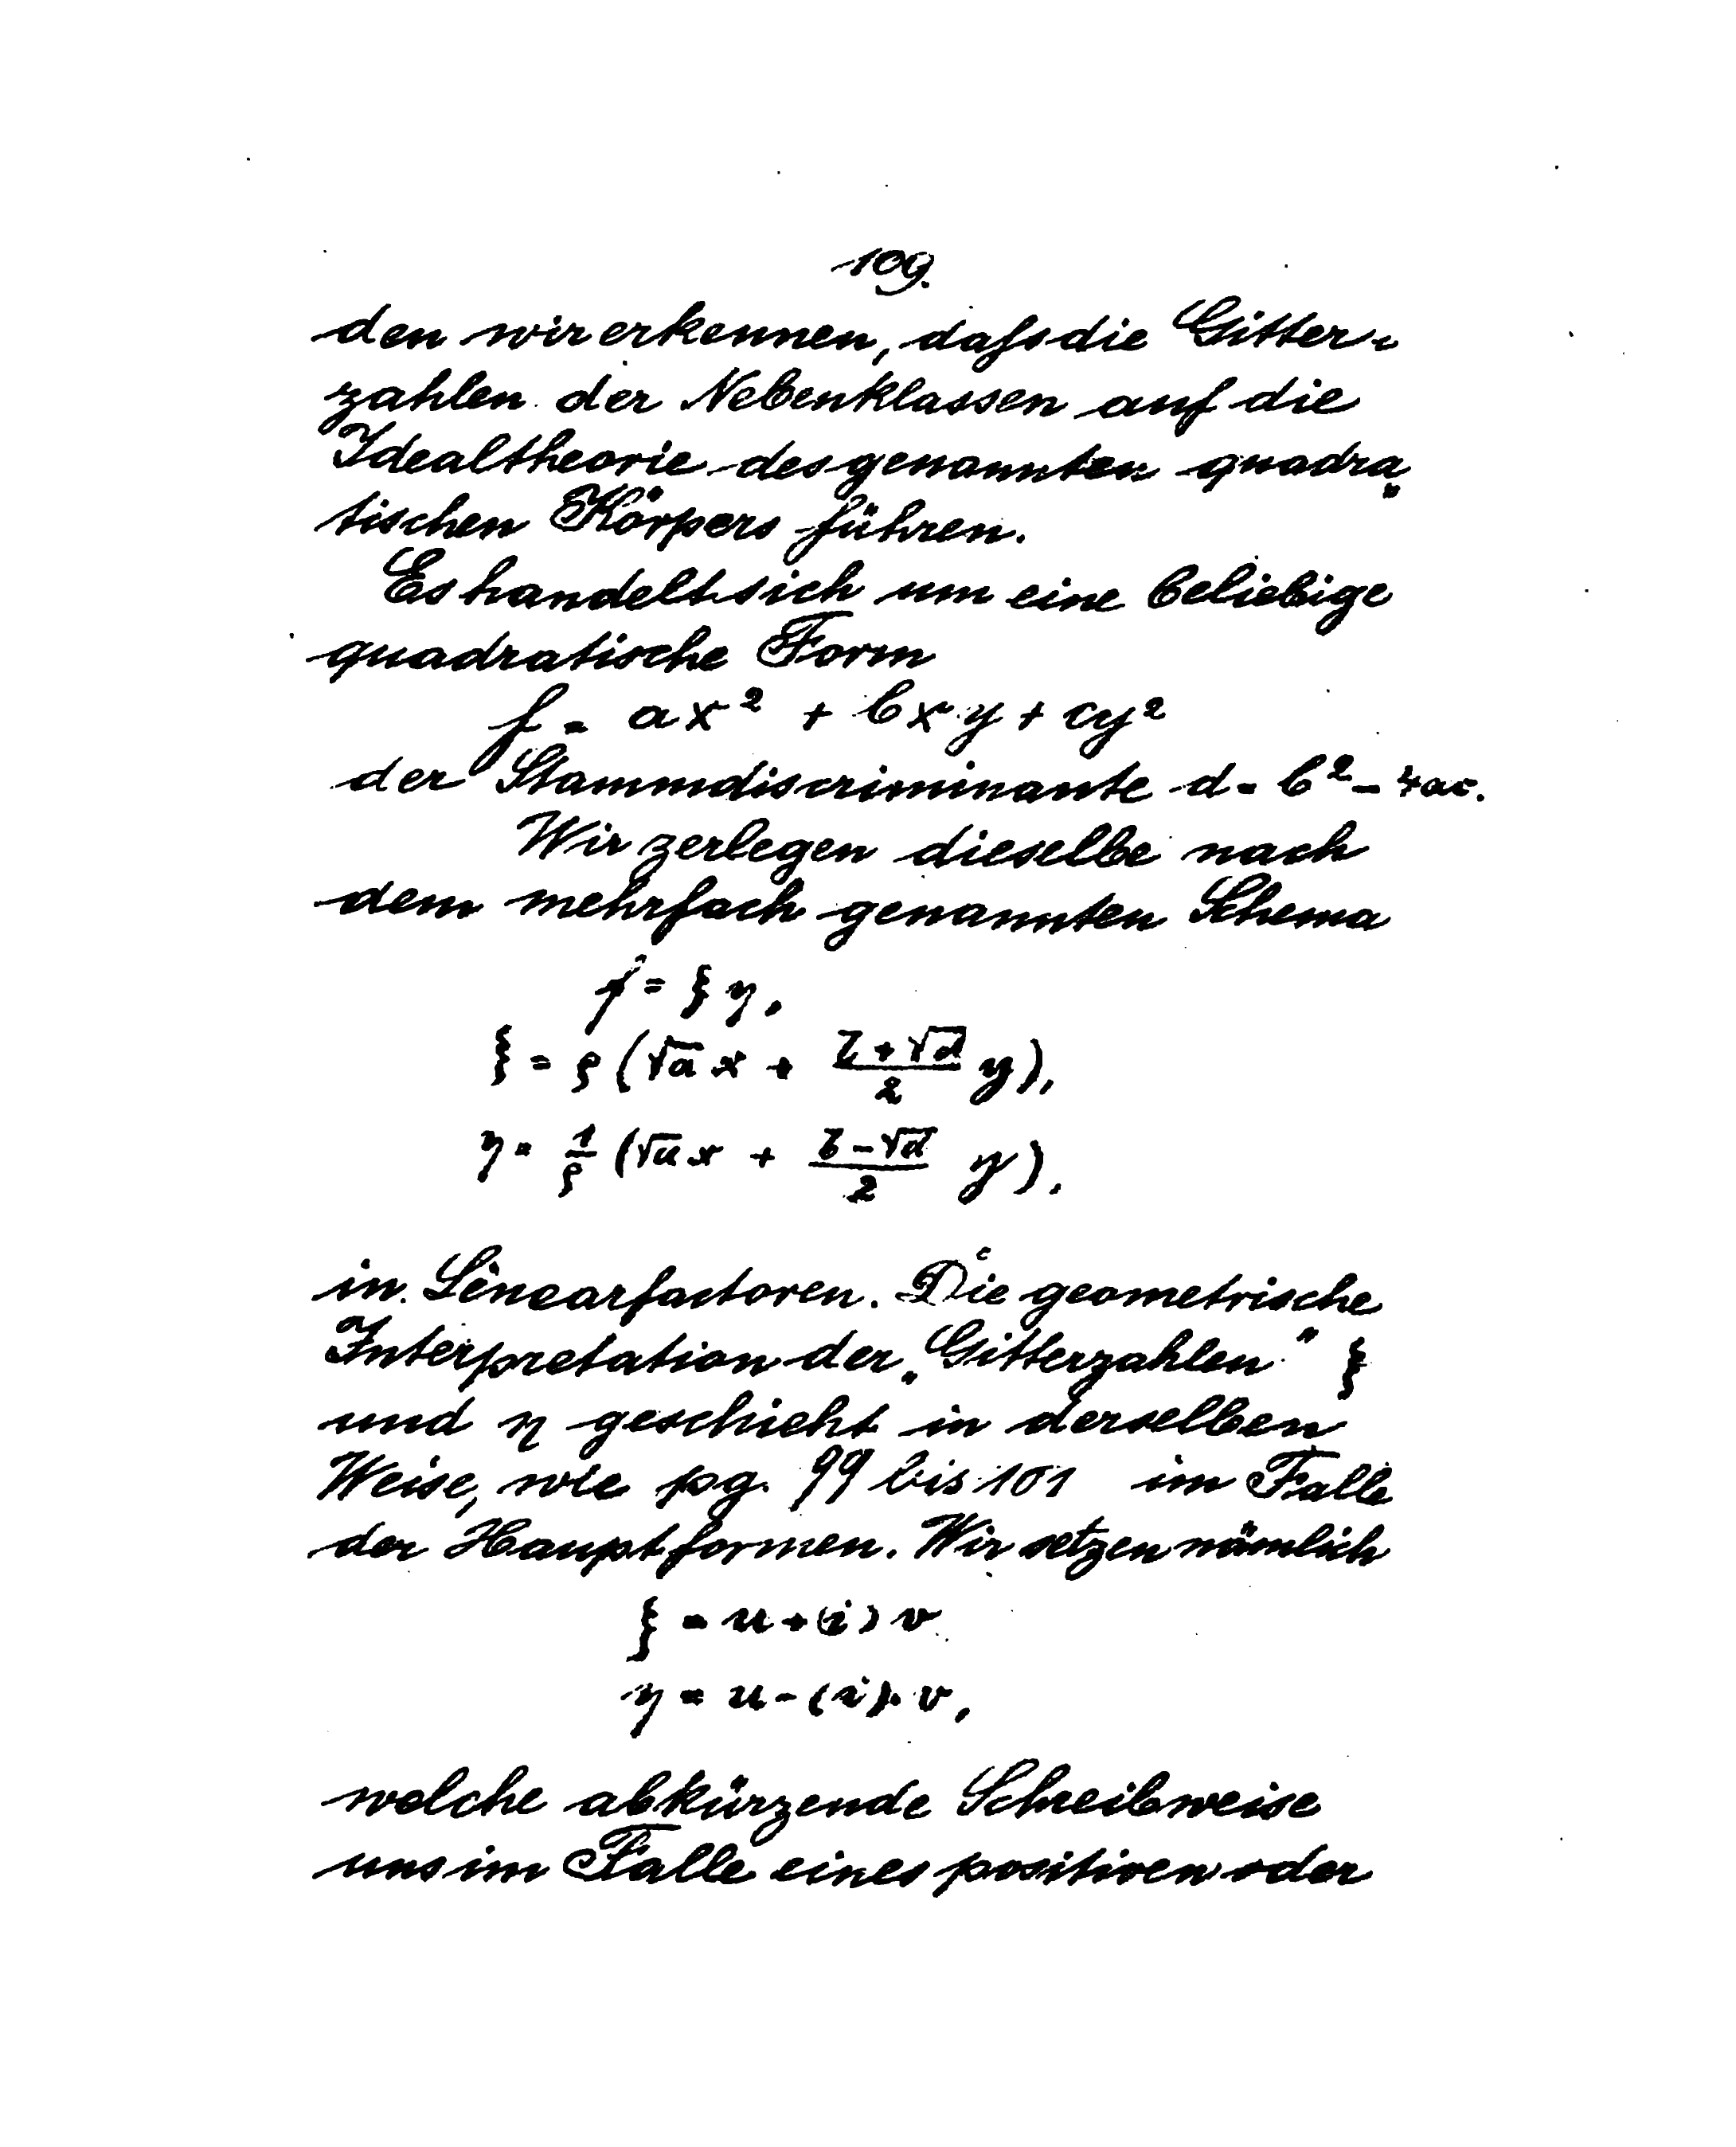 109.
den wir erkennen, dass die Gitter-
zahlen der Nebenklassen auf die
Idealtheorie des genannten quadra„
tischen Körpers führen.
Es handelt sich um eine beliebige
quadratische Form
f = ax² + bxy + cy²
der Stammdiscriminante d = b² - 4ac.
Wir zerlegen dieselbe nach
dem mehrfach genannten Schema
f = ξη,
ξ = ρ (√a x + (b + √d)/2 y),
η = 1/ρ (√a x + (b - √d)/2 y).
in Linearfactoren. Die geometrische
Interpretation der „Gitterzahlen" ξ
und η geschieht in derselben
Weise, wie pg. 99 bis 101 im Falle
der Hauptformen. Wir setzen nämlich
ξ = u + (i) v
η = u - (i) v,
welche abkürzende Schreibweise
uns im Falle eines positiven oder